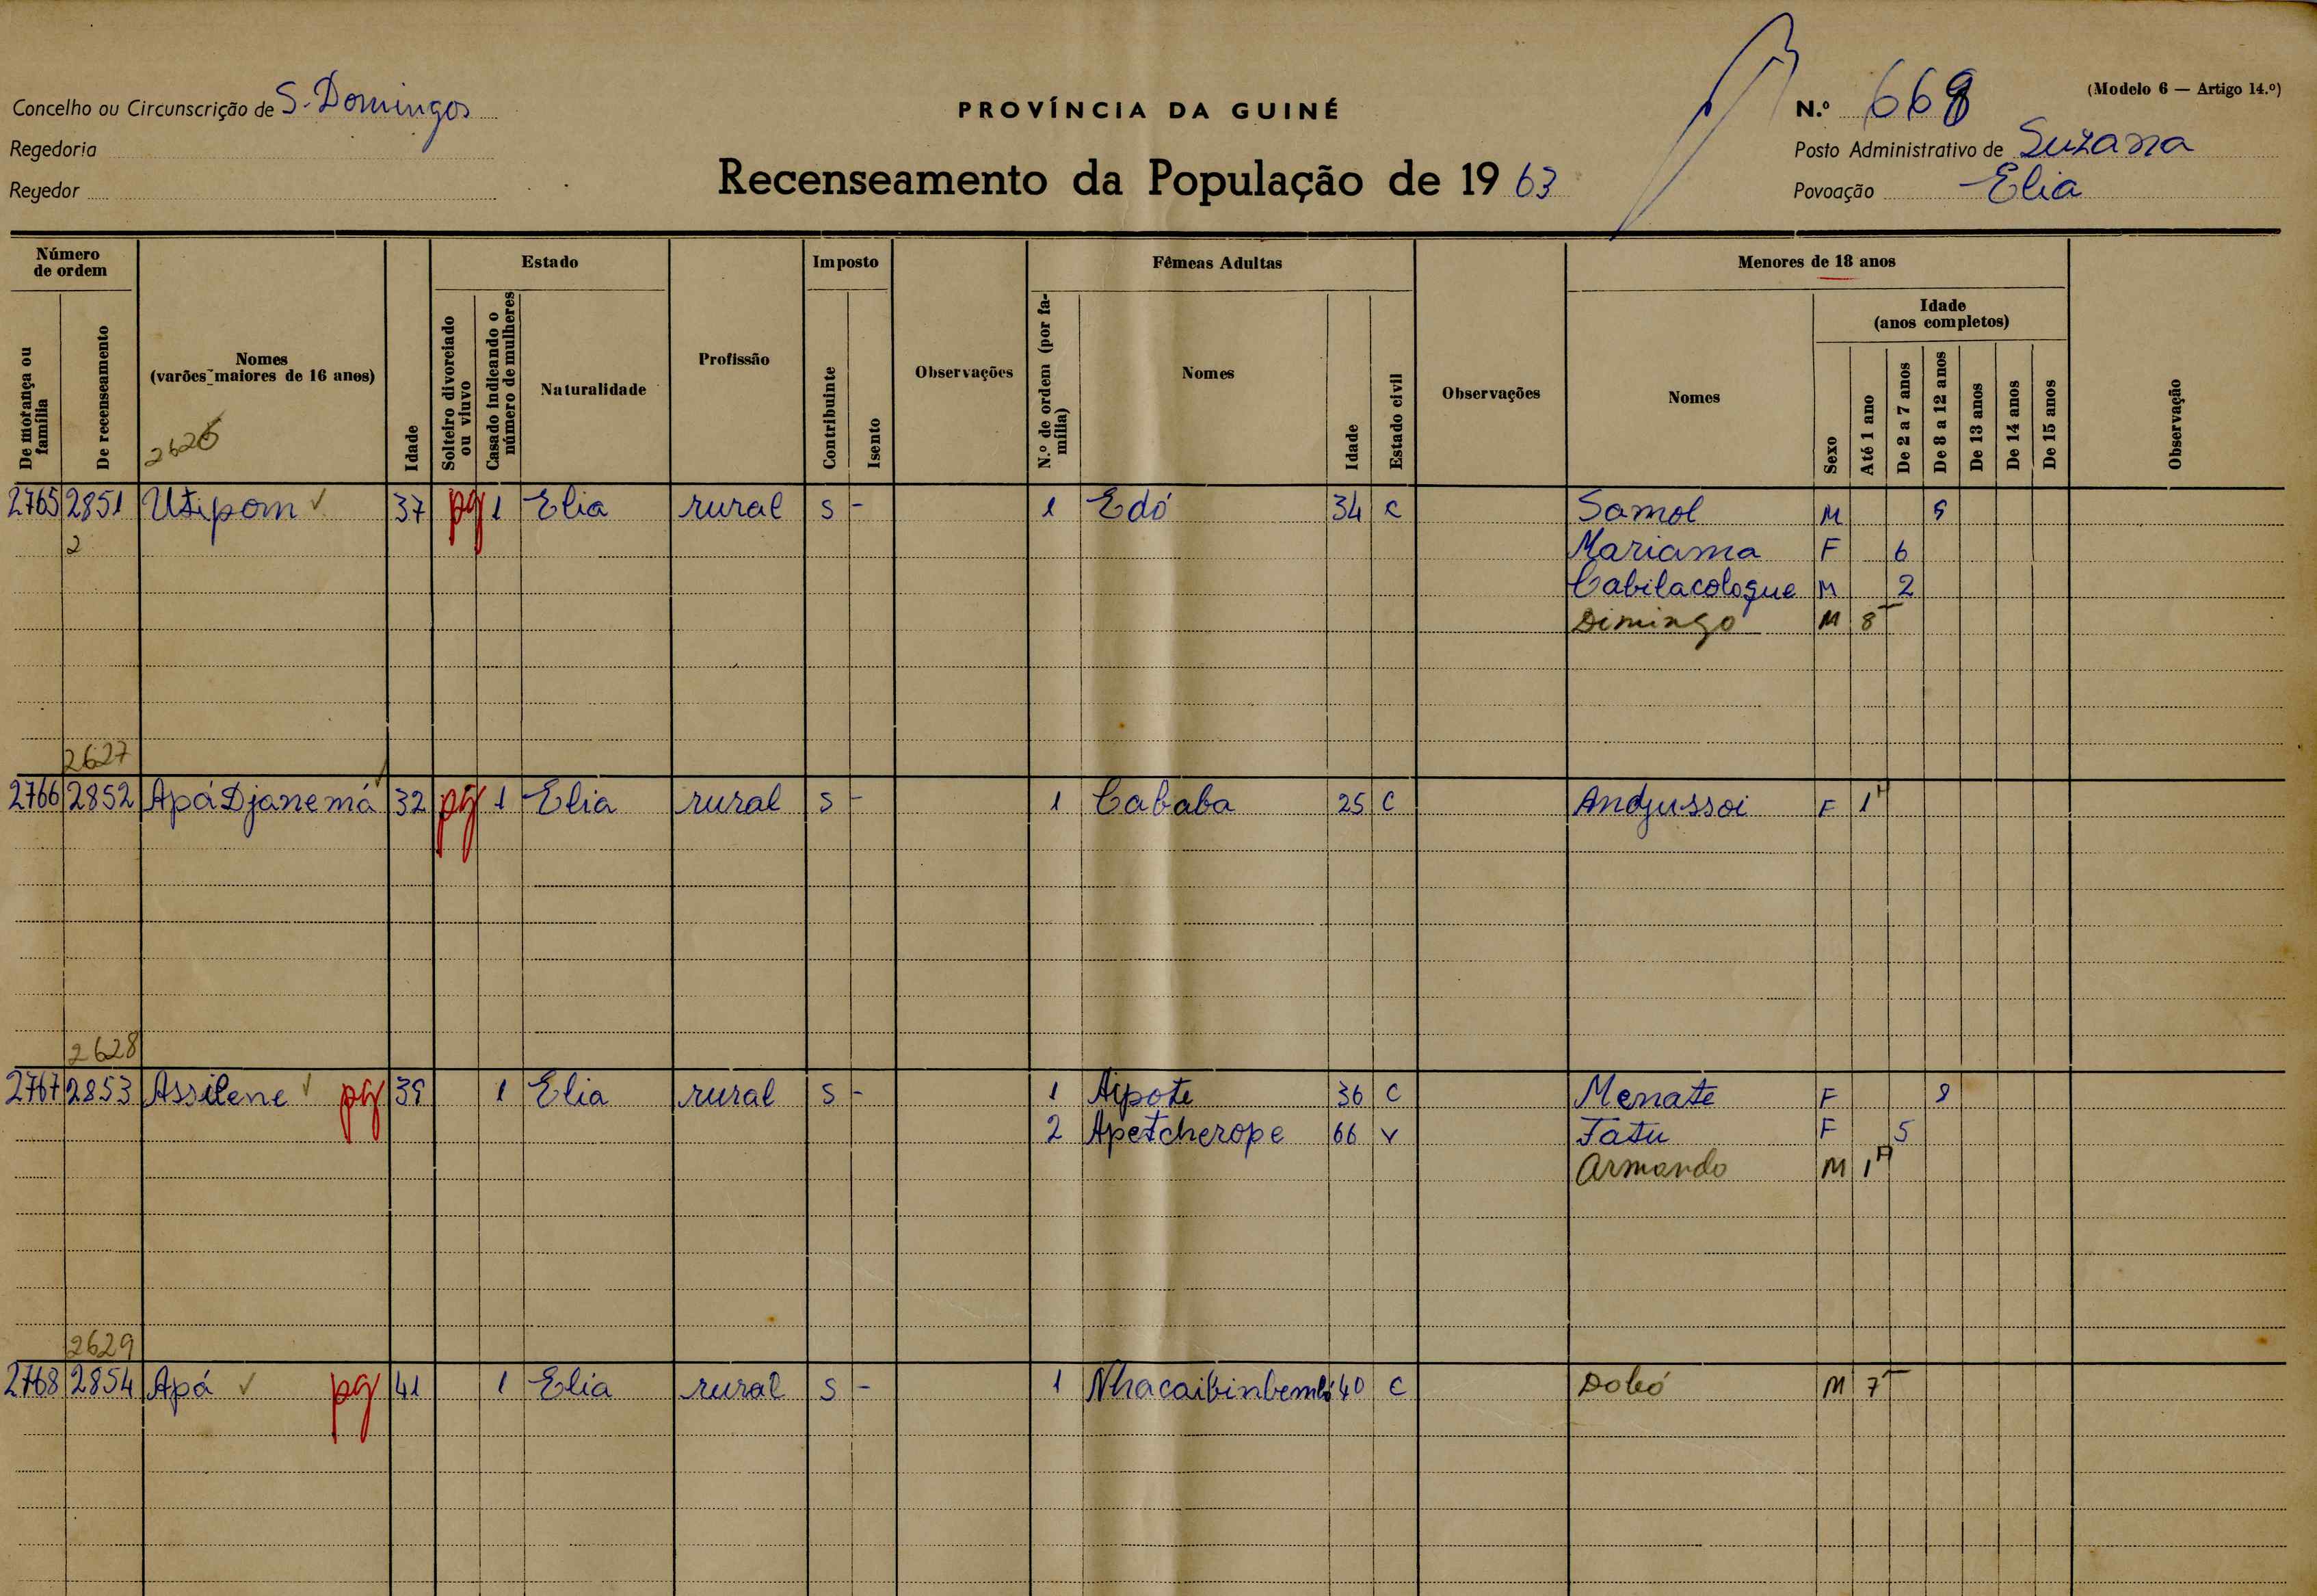 (Modelo 6 — Artigo 14.º)
Concelho ou Circunscrição de S. Domingos
PROVÍNCIA DA GUINÉ
N.º 668
Regedoria
Posto Administrativo de Suzana
Regedor
Recenseamento da População de 1963
Povoação Elia
Número de ordem
Estado
Imposto
Fêmeas Adultas
Menores de 18 anos
De morança ou família
De recenseamento
Nomes (varões maiores de 16 anos)
2626
Idade
Solteiro divorciado ou viuvo
Casado indicando o número de mulheres
Naturalidade
Profissão
Contribuinte
Isento
Observações
N.º de ordem (por família)
Nomes
Idade
Estado civil
Observações
Nomes
Sexo
Idade (anos completos)
Até 1 ano
De 2 a 7 anos
De 8 a 12 anos
De 13 anos
De 14 anos
De 15 anos
Observação
2765 2851 Utipom 37 pg 1 Elia rural s - 1 Edó 34 c Samol M
2 Mariama F 6
Cabilacologue M 2
Dimingo M 8
2627
2766 2852 Apá Djanemá 32 pg 1 Elia rural s - 1 Cababa 25 c Andjussoi F 1
2628
2767 2853 Assilene pg 39 1 Elia rural s - 1 Aipote 36 c Menate F
2 Apetcherope 66 v Fatu F 5
Armando M 1
2629
2768 2854 Apá pg 41 1 Elia rural s - 1 40 c Dobó M 7